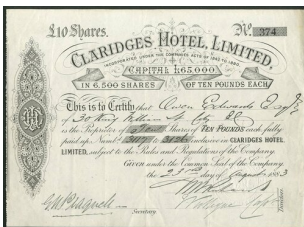 £10 Shares. No. 374
CLARIDGES HOTEL, LIMITED.
INCORPORATED UNDER THE COMPANIES ACTS OF 1862 TO 1880.
CAPITAL £65,000
IN 6,500 SHARES OF TEN POUNDS EACH
This is to Certify that Owen Edwards Esq
of 30 King William St City EC
is the Proprietor of Shares of TEN POUNDS each fully
paid up, Numbd. to inclusive in CLARIDGES HOTEL
LIMITED, subject to the Rules and Regulations of the Company.
GIVEN under the Common Seal of the Company
the 23rd day of August 1883
Secretary